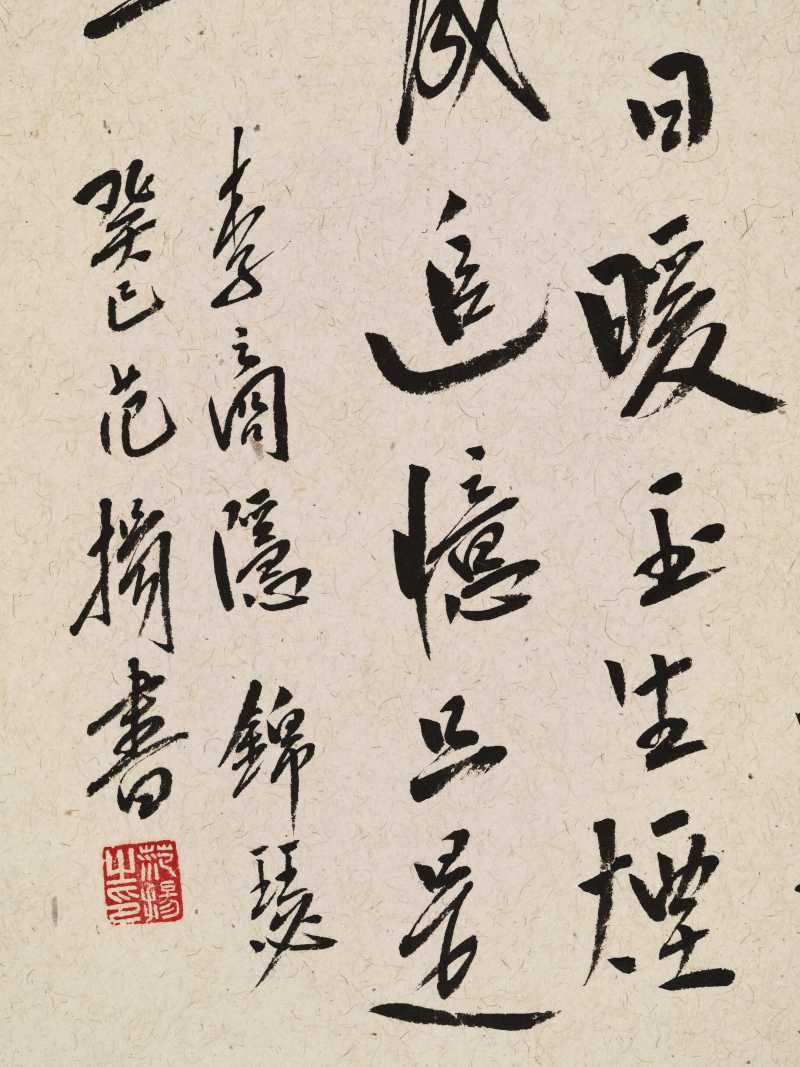 日暖玉生煙
成追憶只是
李商隱錦瑟
癸巳范揚書
范揚之印